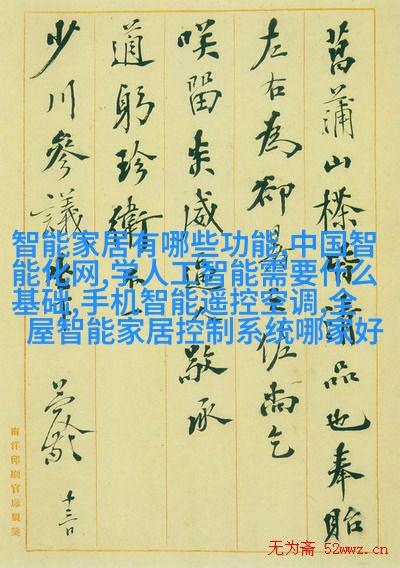 菖蒲山楂品也奉貽
左右為卻暑之佐尚乞
咲留敬承
道躬珍衛不
少川參議
十三日
南洋印刷官廠製箋
智能家居有哪些功能,中国智
能化网,学人工智能需要什么
基础,手机智能遥控空调,全
屋智能家居控制系统哪家好
无为斋 52wwz.cn